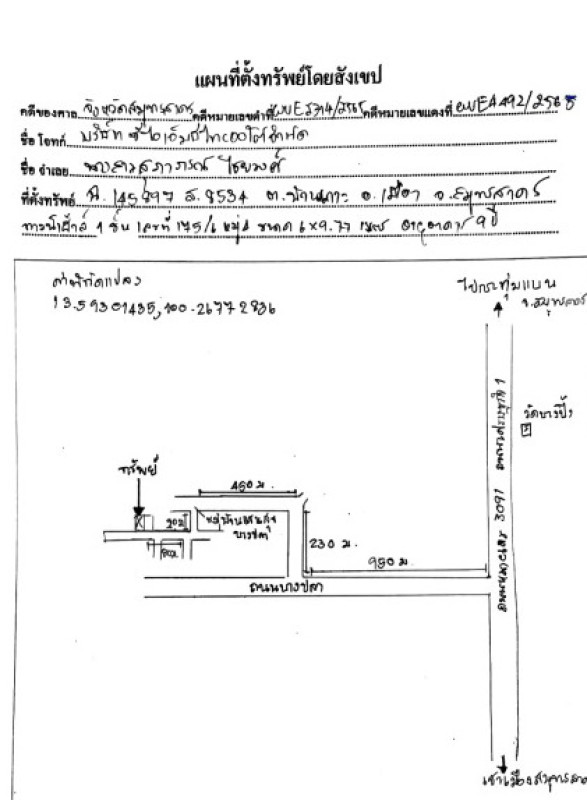 แผนที่ตั้งทรัพย์โดยสังเขป
คดีของศาล จังหวัดสมุทรสาคร คดีหมายเลขดำที่ ผบE2714/2565 คดีหมายเลขแดงที่ ผบE4492/2565
ชื่อ โจทก์ บริษัท ซีไอเอ็มบี ไทย ออโต้ จำกัด
ชื่อ จำเลย นางสาวสุภาภรณ์ ไชยวงศ์
ที่ตั้งทรัพย์ ฉ.145897 ล.8534 ต.บ้านเกาะ อ.เมือง จ.สมุทรสาคร
ทาวน์เฮ้าส์ 1 ชั้น เลขที่ 175/6 หมู่4 ขนาด 6x9.77 เมตร อายุอาคาร 9 ปี
ค่าพิกัดแปลง
13.59301435,100.26772836
ไปกระทุ่มแบน
จ.สมุทรสาคร
ถนนหมายเลข 3091 ถนนเศรษฐกิจ 1
วัดบางปิ้ง
ทรัพย์
450 ม.
202
หมู่บ้านแสนสุข
บางปลา
230 ม.
980 ม.
ถนนบางปลา
เข้าเมืองสมุทรสาคร